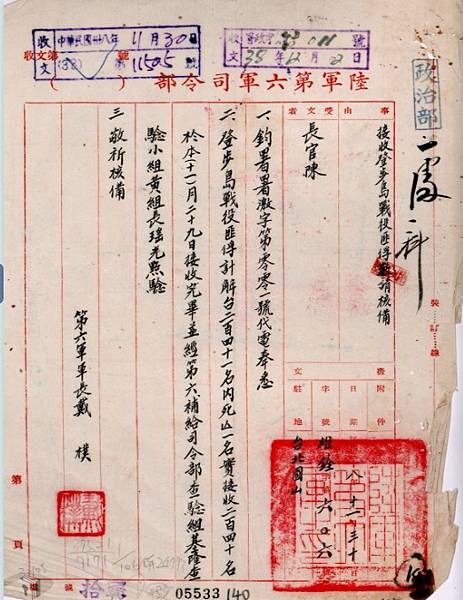 收文 中華民國卅八年11月30日
11505號
陸軍第六軍司令部( )
政治部
二處一科
事由 受文者
接收登步島戰役匪俘敬請核備
長官陳
一、鈞署署澈字第零零一號代電奉悉
二、登步島戰役匪俘計解台二百四十一名內死亡一名實接收二百四十名
於本(十一)月二十九日接收完畢並經第六補給司令部查驗組基隆查
驗小組黃組長瑤光點驗
三、敬祈核備
第六軍軍長戴 樸
發文
附件
日期 八十一三十
字號 六〇六
駐地 台北圓山
裝 訂 線
第 頁
05533 140